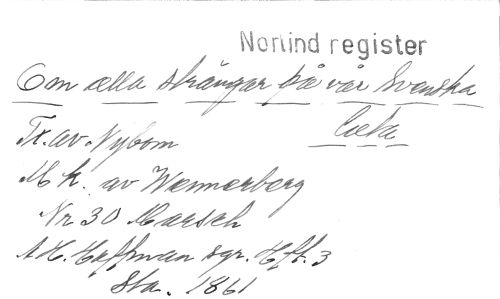 Norlind register
Om alla strängar på vår Svenska
luta
Tx. av Nybom
Mk. av Wennerberg
Nr 30 Marsch
A H. Haffman sgr. Hft. 3
Sta. 1861